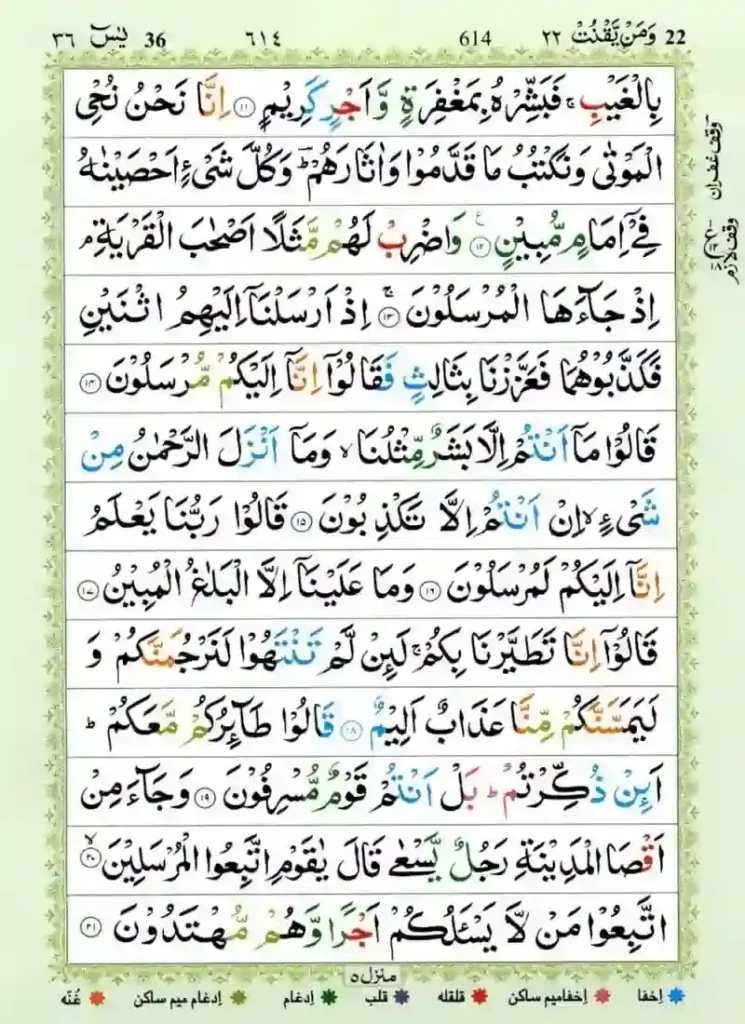 22 وَمَنْ يَّقْنُتْ ٢٢ 614 ٦١٤ 36 يٰسٓ ٣٦
بِالْغَيْبِ ۚ فَبَشِّرْهُ بِمَغْفِرَةٍ وَّاَجْرٍ كَرِيْمٍ ۝۱۱ اِنَّا نَحْنُ نُحْيِ
الْمَوْتٰى وَنَكْتُبُ مَا قَدَّمُوْا وَاٰثَارَهُمْ ؕ وَكُلَّ شَىْءٍ اَحْصَيْنٰهُ
فِيْۤ اِمَامٍ مُّبِيْنٍ ۝۱۲ وَاضْرِبْ لَهُمْ مَّثَلًا اَصْحٰبَ الْقَرْيَةِ ۘ
اِذْ جَآءَهَا الْمُرْسَلُوْنَ ۝۱۳ ۚ اِذْ اَرْسَلْنَاۤ اِلَيْهِمُ اثْنَيْنِ
فَكَذَّبُوْهُمَا فَعَزَّزْنَا بِثَالِثٍ فَقَالُوْۤا اِنَّاۤ اِلَيْكُمْ مُّرْسَلُوْنَ ۝۱۴
قَالُوْا مَاۤ اَنْتُمْ اِلَّا بَشَرٌ مِّثْلُنَا ۙ وَمَاۤ اَنْزَلَ الرَّحْمٰنُ مِنْ
شَىْءٍ ۙ اِنْ اَنْتُمْ اِلَّا تَكْذِبُوْنَ ۝۱۵ قَالُوْا رَبُّنَا يَعْلَمُ
اِنَّاۤ اِلَيْكُمْ لَمُرْسَلُوْنَ ۝۱۶ وَمَا عَلَيْنَاۤ اِلَّا الْبَلٰغُ الْمُبِيْنُ ۝۱۷
قَالُوْۤا اِنَّا تَطَيَّرْنَا بِكُمْ ۚ لَئِنْ لَّمْ تَنْتَهُوْا لَنَرْجُمَنَّكُمْ وَ
لَيَمَسَّنَّكُمْ مِّنَّا عَذَابٌ اَلِيْمٌ ۝۱۸ قَالُوْا طَآئِرُكُمْ مَّعَكُمْ ؕ
اَئِنْ ذُكِّرْتُمْ ؕ بَلْ اَنْتُمْ قَوْمٌ مُّسْرِفُوْنَ ۝۱۹ وَجَآءَ مِنْ
اَقْصَا الْمَدِيْنَةِ رَجُلٌ يَّسْعٰى قَالَ يٰقَوْمِ اتَّبِعُوا الْمُرْسَلِيْنَ ۝۲۰ ۙ
اتَّبِعُوْا مَنْ لَّا يَسْئَلُكُمْ اَجْرًا وَّهُمْ مُّهْتَدُوْنَ ۝۲۱
وقف غفران
وقف لازم
منزل ٥
اِخفا اِخفامیم ساکن قلقله قلب اِدغام اِدغام میم ساکن غُنّه